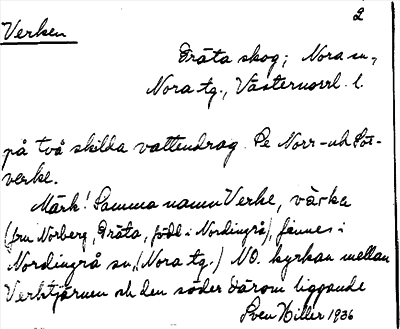 2
Verken
Gräta skog; Nora sn,
Nora tg., Västernorrl. l.
på två skilda vattendrag. Se Norr- och Sör-
verke.
Märk! Samma namn Verke, värka
(fru Norberg, Gräta, född i Nordingrå), finnes i
Nordingrå sn, (Nora tg.) NO. kyrkan mellan
Verktjärnen och den söder därom liggande
Sven Hiller 1936